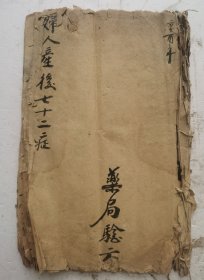 藥局驗
婦人產後七十二症